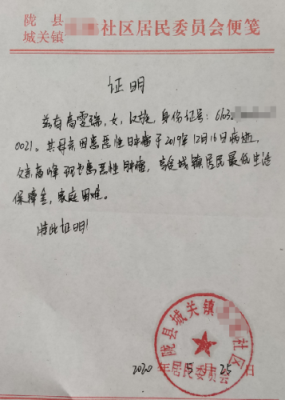 陇县
城关镇 社区居民委员会便笺
证明
兹有高雯锦，女，汉族，身份证号：6103
0021。其母亲因患恶性肿瘤于2019年12月16日病逝，
父亲高峰 患恶性肿瘤，享受城镇居民最低生活
保障金，家庭困难。
特此证明！
陇县城关镇 社区
居民委员会
2020年 月25日